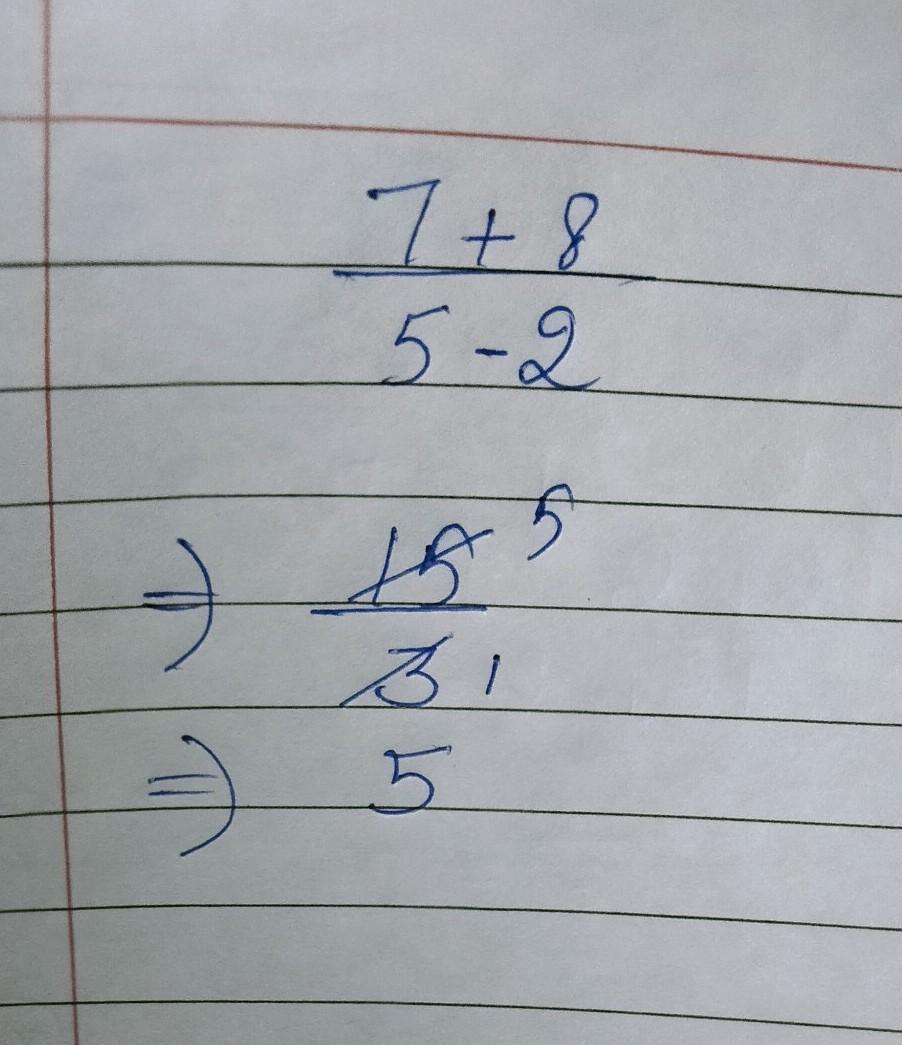 7 + 8
5 - 2
⇒ 15 5
3 1
⇒ 5